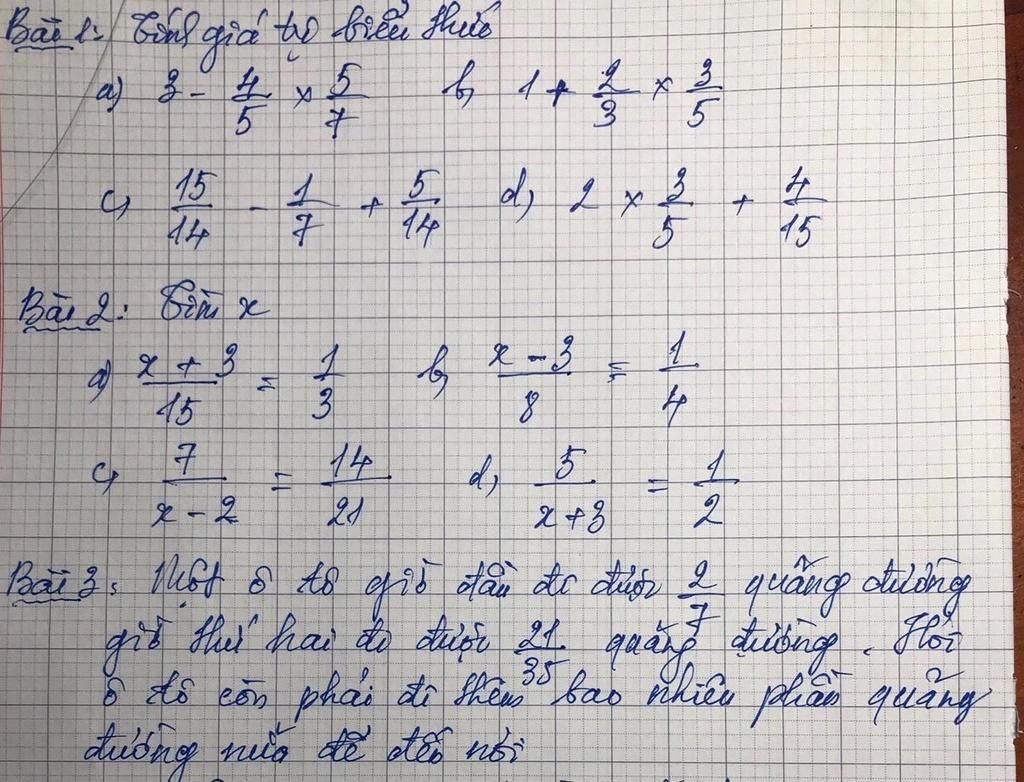 Bài 1: Tính giá trị biểu thức
a) 3 - 4/5 × 5/7 b, 1 + 2/3 × 3/5
c, 15/14 - 1/7 + 5/14 d, 2 × 3/5 + 4/15
Bài 2: Tìm x
a) x + 3/15 = 1/3 b, x - 3/8 = 1/4
c, 7/x - 2 = 14/21 d, 5/x + 3 = 1/2
Bài 3: Một ô tô giờ đầu đi được 2/7 quãng đường
giờ thứ hai đi được 21/35 quãng đường. Hỏi
ô tô còn phải đi thêm bao nhiêu phần quãng
đường nữa để đến nơi